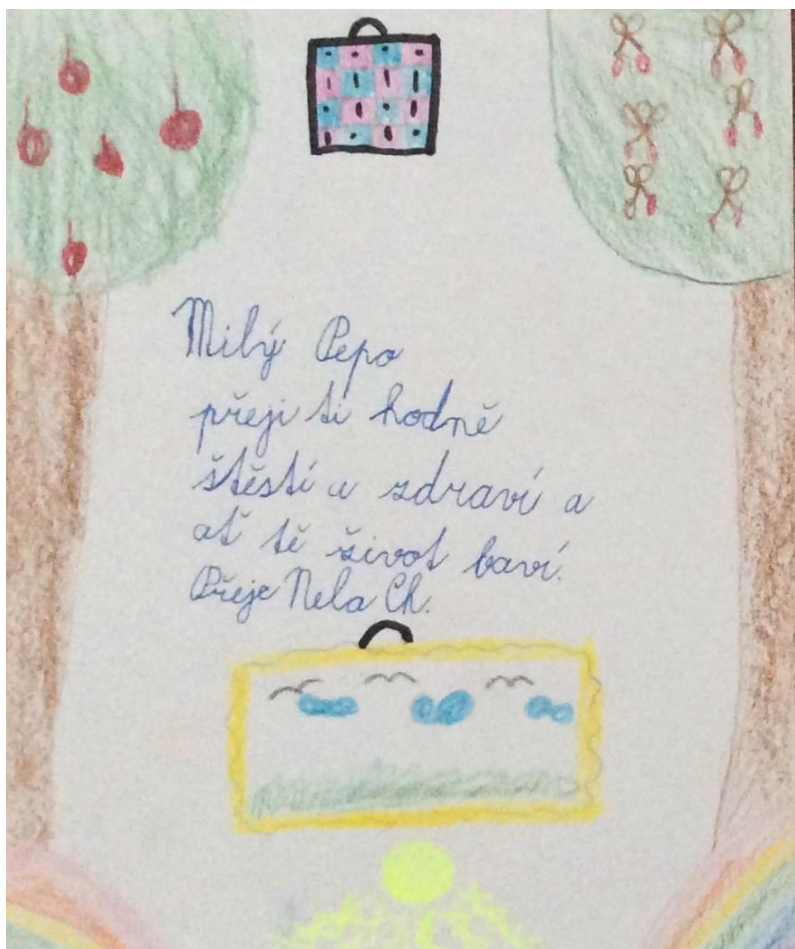 Milý Pepo
přeji ti hodně
štěstí a zdraví a
ať tě život baví.
Přeje Nela Ch.